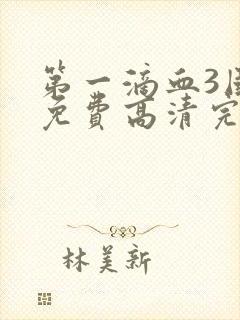 第一滴血3
免费高清完
林美新